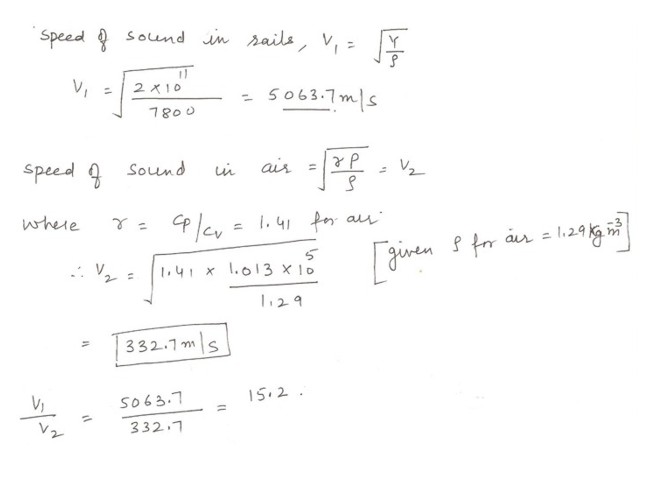 Speed of sound in rails, V₁ = √(Y/ρ)
V₁ = √(2 × 10¹¹ / 7800) = 5063.7 m/s
Speed of sound in air = √(γP/ρ) = V₂
where γ = Cp/Cv = 1.41 for air
∴ V₂ = √(1.41 × 1.013 × 10⁵ / 1.29) [given ρ for air = 1.29 kg m⁻³]
= 332.7 m/s
V₁/V₂ = 5063.7/332.7 = 15.2.